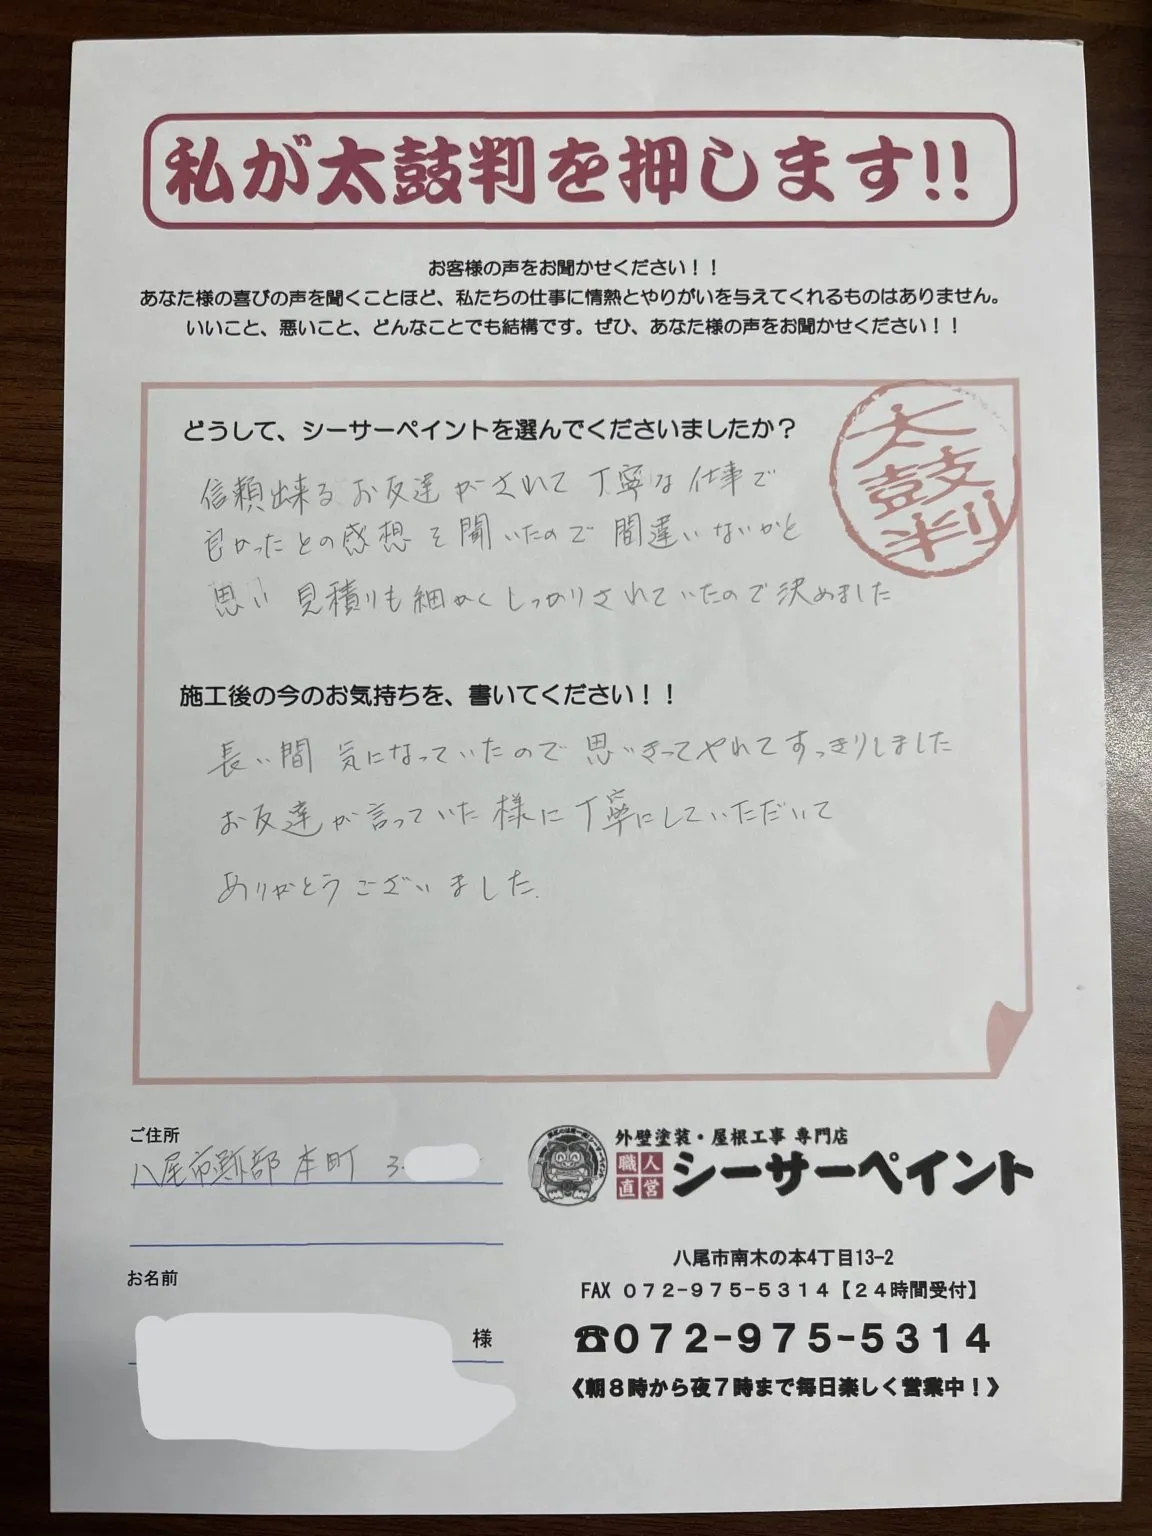 私が太鼓判を押します!!
お客様の声をお聞かせください！！
あなた様の喜びの声を聞くことほど、私たちの仕事に情熱とやりがいを与えてくれるものはありません。
いいこと、悪いこと、どんなことでも結構です。ぜひ、あなた様の声をお聞かせください！！
太鼓判
どうして、シーサーペイントを選んでくださいましたか？
信頼出来るお友達がされて丁寧な仕事で
良かったとの感想を聞いたので間違いないかと
思い 見積りも細かくしっかりされていたので決めました
施工後の今のお気持ちを、書いてください！！
長い間 気になっていたので思いきってやれてすっきりしました
お友達が言っていた様に丁寧にしていただいて
ありがとうございました.
ご住所
八尾市跡部本町 3-
お名前
様
外壁塗装・屋根工事 専門店
職人直営 シーサーペイント
八尾市南木の本4丁目13-2
FAX ０７２-９７５-５３１４【２４時間受付】
☎０７２-９７５-５３１４
《朝８時から夜７時まで毎日楽しく営業中！》